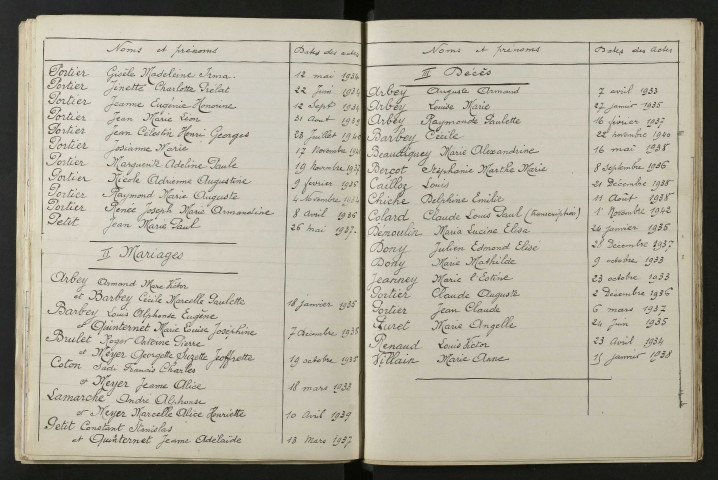 Noms et prénoms Dates des actes
Portier Gisèle Madeleine Irma. 12 mai 1934
Portier Ginette Charlotte Prélat 22 Juin 1934
Portier Jeanne Eugénie Honorine 12 Sept 1934
Portier Jean Marie Léon 31 Aout 1939
Portier Jean Célestin Henri Georges 23 Juillet 1940
Portier Josianne Marie 17 Novembre
Portier Marguerite Adeline Paule 19 Novembre
Portier Nicole Adrienne Augustine 9 février 1936
Portier Raymond Marie Auguste 4 Novembre 1934
Portier Renée Joseph Marie Armandine 8 Avril 1936
Petit Jean Marie Paul 26 mai 1937.
II Mariages
Arbey Armand Marc Victor
et Barbey Cécile Marcelle Paulette 18 janvier 1935
Barbey Louis Alphonse Eugène
et Quinternet Marie Louise Joséphine 7 décembre 1935
Brulet Roger Antoine Pierre
et Meyer Georgette Suzette Jeoffrette 19 octobre 1935
Coton Sadi Francis Charles
et Meyer Jeanne Alice 18 mars 1933
Lamarche André Alphonse
et Meyer Marcelle Alice Henriette 10 Avril 1939
Petit Constant Stanislas
et Quinternet Jeanne Adélaïde 13 Mars 1937
Noms et prénoms Dates des Actes
III Décès
Arbey Auguste Armand 7 avril 1933
Arbey Louise Marie 27 janvier 1935
Arbey Raymonde Paulette 16 février 1937
Barbey Cécile 22 novembre 1940
Beaudiguey Marie Alexandrine 16 mai 1938
Berçot Stéphanie Marthe Marie 8 Septembre 1936
Cailloz Louis 21 Décembre 1938
Chiche Delphine Emilie 11 Août 1938
Colard Claude Louis Paul (Transcription) 1 Novembre 1942
Démoulin Maria Lucine Elise 24 janvier 1935
Dony Julien Edmond Elisé 28 Décembre 1937
Dony Marie Mathilde 9 octobre 1933
Jeanney Marie l'Estène 23 octobre 1933
Portier Claude Auguste 2 Décembre 1936
Portier Jean Claude 6 mars 1937
Marie Angelle 24 Juin 1935
Renaud Louis Victor 23 Avril 1934
Villain Marie Anne 15 janvier 1938